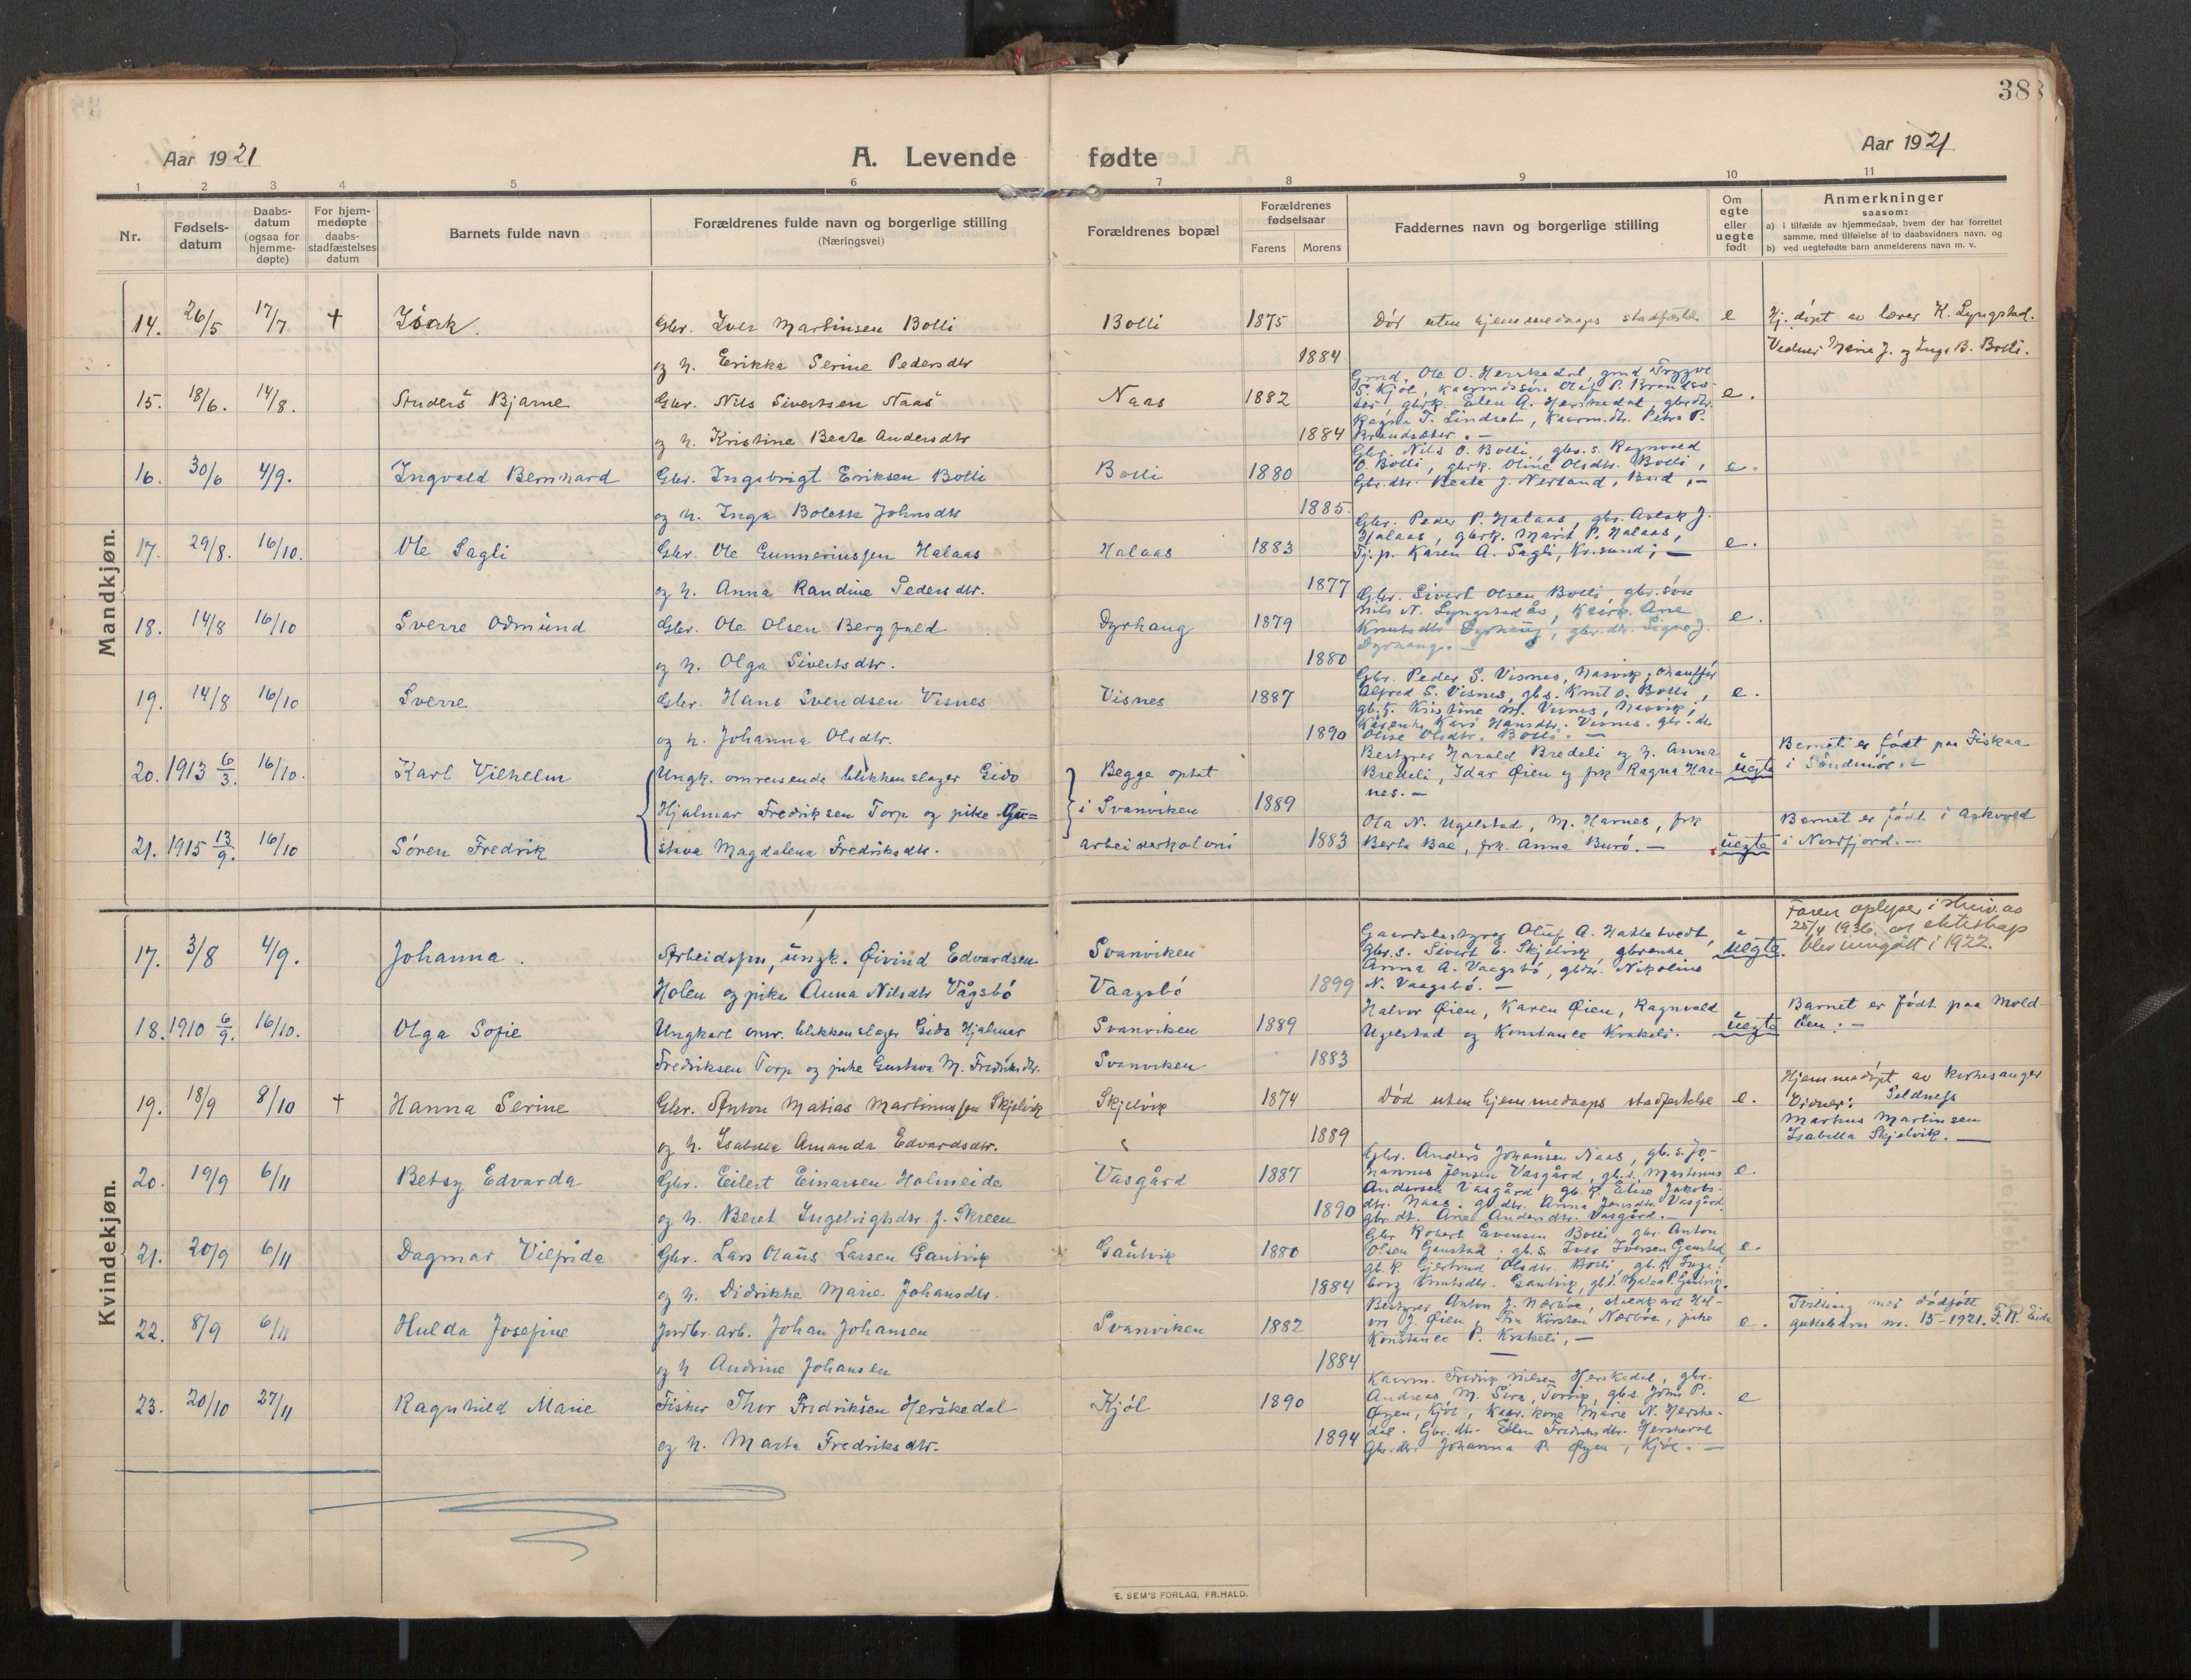 38
Aar 1921
A. Levende fødte
Aar 1921
1 2 3 4 5 6 7 8 9 10 11
Nr.
Fødsels-
datum
Daabs-
datum
(ogsaa for
hjemme-
døpte)
For hjem-
medøpte
daabs-
stadfæstelses
datum
Barnets fulde navn
Forældrenes fulde navn og borgerlige stilling
(Næringsvei)
Forældrenes bopæl
Forældrenes
fødselsaar
Farens Morens
Faddernes navn og borgerlige stilling
Om
egte
eller
uegte
født
Anmerkninger
saasom:
a) i tilfælde av hjemmedaab, hvem der har forrettet
samme, med tilføielse af to daabsvidners navn, og
b) ved uegtefødte barn anmelderens navn m. v.
Mandkjøn.
14. 26/5 17/7 † Isak. Gbr. Iver Martinsen Bolli Bolli 1875 Död uten hjemmedaaps stadfæstelse e Hj. döpt av lærer K. Lyngstad.
og h. Erikka Serine Pedersdtr 1884 Vidner Marie J. og Inga B. Bolli.
15. 18/6. 14/8. Anders Bjarne Gbr. Nils Sivertsen Naas Naas 1882 e.
og h. Kristine Beate Andersdtr 1884
Grmd. Ole O. Herskedal, grmd Trygve
S. Kjöl, kaarmandssön Olaf P. Brandsæ-
ter, gbrk. Elen A. Herskedal, gbr.dtr.
Ragna T. Lindset, kaarm.dtr. Petra P.
Brandsæter. –
16. 30/6 4/9. Ingvald Bernhard Gbr. Ingebrigt Eriksen Bolli Bolli 1880 e.
og h. Inga Bolette Johnsdtr 1885.
Gbr. Nils O. Bolli, gbr.s. Ragnvald
O. Bolli, gbrk. Oline Olsdtr. Bolli,
Gbr.dtr. Beate J. Nerland, Bud, –
17. 29/8. 16/10. Ole Sagli Gbr. Ole Gunneriussen Halaas Halaas 1883 e.
og h. Anna Randine Pedersdtr. 1877
Gbr. Peder P. Halaas, gbr. Aslak J.
Halaas, gbrk. Marit P. Halaas,
Tj.p. Karen A. Sagli, Kr.sund; –
18. 14/8 16/10 Sverre Odmund Gbr. Ole Olsen Bergfald Dyrhaug 1879 e.
og h. Olga Sivertsdtr. 1880
Gbr. Sivert Olsen Bolli, gbr.sön
Nils N. Lyngstadås, kaark. Ane
Knutsdtr Dyrhaug, gbr.dtr. Signe J.
Dyrhaug. –
19. 14/8 16/10 Sverre Gbr. Hans Svendsen Visnes Visnes 1887 e.
og h. Johanna Olsdtr. 1890
Gbr. Peder S. Visnes, Nasvik, chauffør
Alfred S. Visnes, gb.s. Knut O. Bolli,
gb.k. Kristine M. Visnes, Nasvik;
Kårenke Kari Hansdtr. Visnes. gbr.dtr
Oline Olsdtr. Bolli. –
20. 1913 6/3. 16/10. Karl Vilhelm Ungk. omreisende blikkenslager Gido Begge optat uegte
Hjalmar Fredriksen Torp og pike Gu= i Svanviken 1889
Bestyrer Harald Bredeli og h. Anna
Bredeli, Idar Øien og frk Ragna Har-
nes. –
Barnet er födt paa Fiskaa
i Söndmör. –
21. 1915 13/9. 16/10 Sören Fredrik stava Magdalena Fredriksdtr. arbeiderkoloni 1883 uegte
Ola N. Ugelstad, M. Harnes, frk
Berta Bae, frk. Anna Burö. –
Barnet er födt i Askvold
i Nordfjord. –
Kvindekjøn.
17. 3/8 4/9. Johanna. Arbeidsfm, ungk. Øivind Edvardsen Svanviken uegte.
Holen og pike Anna Nilsdtr Vågsbö Vaagsbö 1899
Gaardsbestyrer Oluf A. Hatletvedt,
Gbr.s. Sivert E. Skjelvik, gbrenke
Anna A. Vaagsbö, gbdtr. Nikoline
N. Vaagsbö. –
Faren oplyser i skriv. av
25/4 1936, at ekteskap
blev inngått i 1922.
18. 1910 6/9. 16/10. Olga Sofie Ungkarl omr. blikkenslager Gido Hjalmar Svanviken 1889 uegte
Fredriksen Torp og pike Gustava M. Fredriksdtr. Svanviken 1883
Halvor Øien, Karen Øien, Ragnvald
Ugelstad og Konstance Krakeli.
Barnet er födt paa Mold-
öen. –
19. 18/9 8/10 † Hanna Serine Gbr. Anton Matias Martinussen Skjelvik Skjelvik 1874 Död uten hjemmedaaps stadfestelse e.
og h. Isabella Amanda Edvardsdtr. 1889
Hjemmedöpt av kirkesanger
Vidner: Seldness
Markus Martinsen
Isabella Skjelvik. –
20. 19/9 6/11 Betsy Edvarda Gbr. Eilert Einarsen Holmeide Vasgård 1887 e.
og h. Beret Ingebrigtsdtr. f. Skreen 1890
Gbr. Anders Johansen Naas, gb.s. Jo-
hannes Jensen Vasgård, gb.s. Martinus
Andersen Vasgård gb.k. Eline Jakobs-
dtr. Naas. gb.dtr. Anna Jensdtr. Vasgård.
gbr.dt. Ane Andersdtr. Vasgård. –
21. 20/9 6/11 Dagmar Vilfrida Gbr. Lars Olaus Larsen Gautvik Gautvik 1880 e.
og h. Didrikke Marie Johansdtr. 1884
Gbr Robert Evensen Bolli, gbr. Anton
Olsen Gaustad. gb.s. Iver Iversen Gaustad,
gb.k. Gjertrud Olsdtr. Bolli, gb.k. Inge-
borg Knutsdtr. Gautvik, gb.d. Malea P. Gautvik.
22. 8/9 6/11 Hulda Josefine Jordbr. arb. Johan Johansen Svanviken 1882 e.
og h Andrine Johansen 1884
Bestyrer Anton J. Nærböe, Hal-
vor J. Øien, Fru Kirsten Nærböe, pike
Konstance P. Krakeli, –
Tvilling med dödfött
guttebarn nr. 15–1921. F.R. Eide
23. 20/10 27/11 Ragnhild Marie Fisker Thor Fredriksen Herskedal Kjöl 1890 e
og h. Marta Fredriksdtr. 1894
Kaarm. Fredrik Nilsen Herskedal, gbr.
Andreas M. Sira, Torvik, gb.s. John P.
Øygen, Kjöl, Kaar.kone Marie N. Herske-
dal. Gbr.dtr. Ellen Fredriksdtr. Herskedal
Gbr.dtr Johanna P. Øygen, Kjöl. –
E. SEM'S FORLAG, FR.HALD.